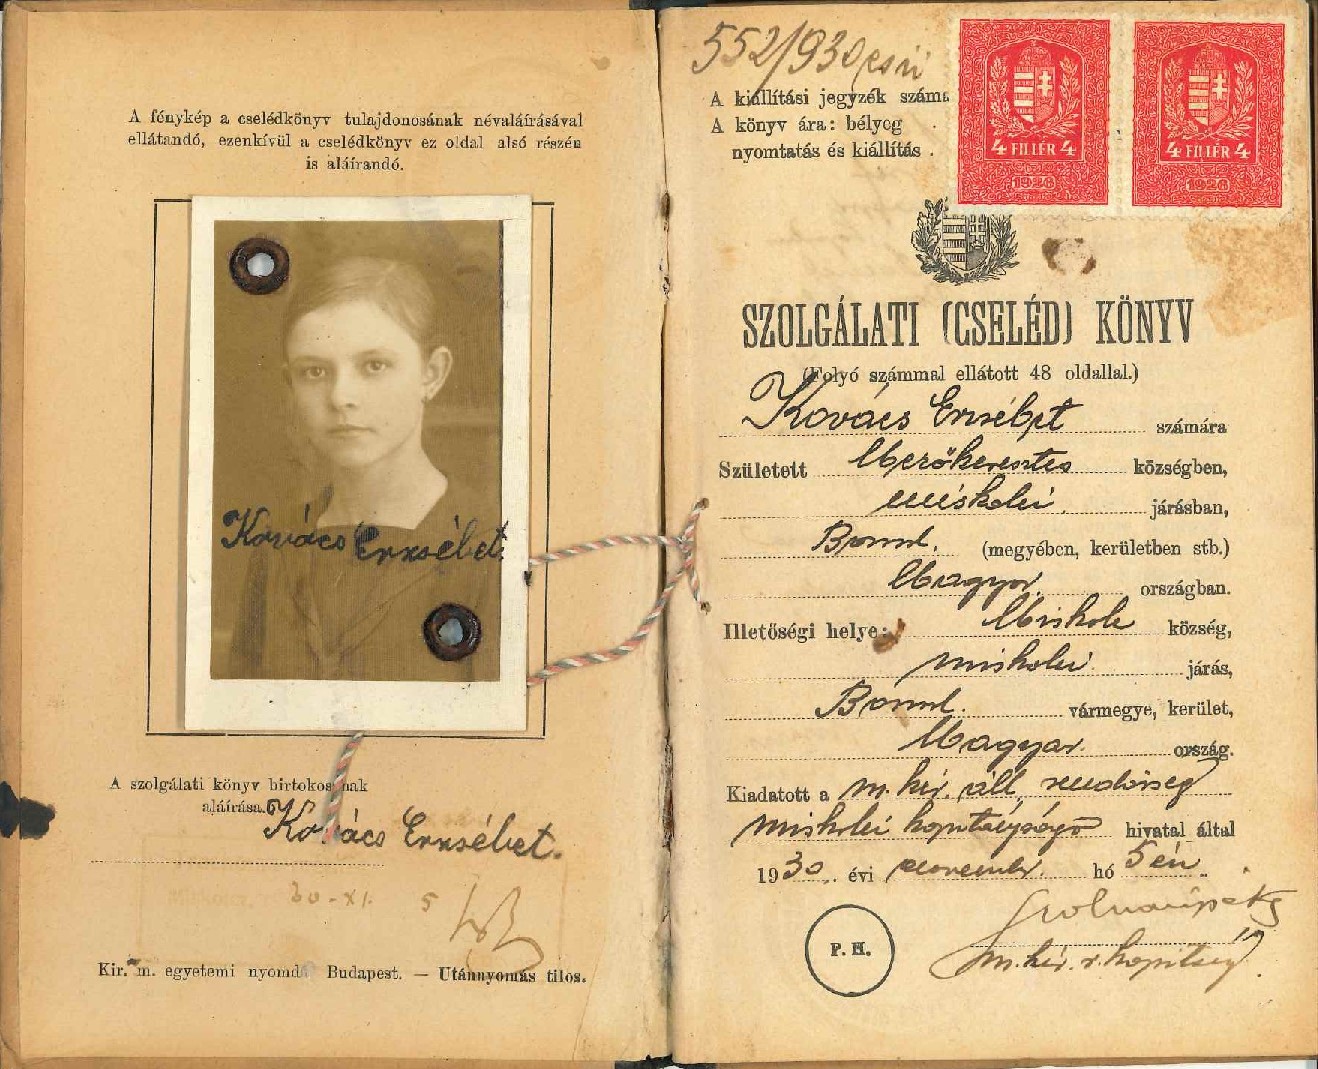 A fénykép a cselédkönyv tulajdonosának névaláírásával
ellátandó, ezenkívül a cselédkönyv ez oldal alsó részén
is aláírandó.
Kovács Erzsébet
A szolgálati könyv birtokosának
aláírása.
Kovács Erzsébet.
30 - XI. 5
Kir. m. egyetemi nyomda Budapest. — Utánnyomás tilos.
552/930
A kiállítási jegyzék száma
A könyv ára: bélyeg
nyomtatás és kiállítás .
4 FILLÉR 4
1926
4 FILLÉR 4
1926
SZOLGÁLATI (CSELÉD) KÖNYV
(Folyó számmal ellátott 48 oldallal.)
Kovács Erzsébet számára
Született Mezőkeresztes községben,
miskolci járásban,
Borsod. (megyében, kerületben stb.)
Magyar országban.
Illetőségi helye: Miskolc község,
miskolci járás,
Borsod. vármegye, kerület,
Magyar ország.
Kiadatott a m. kir. áll. rendőrség
miskolci kapitánysága hivatal által
1930. évi november hó 5 én.
P. H.
m. kir. r. kapitány.